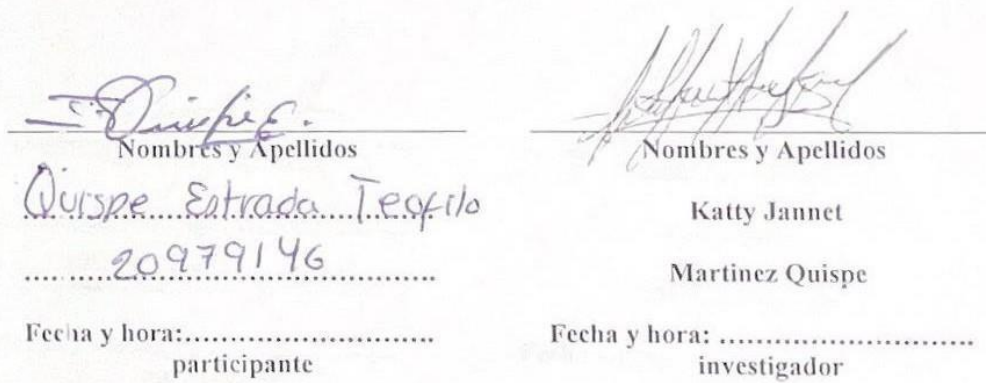 Quispe E.
Nombres y Apellidos
Quispe Estrada Teofilo
20979146
Fecha y hora:
participante
Nombres y Apellidos
Katty Jannet
Martinez Quispe
Fecha y hora:
investigador